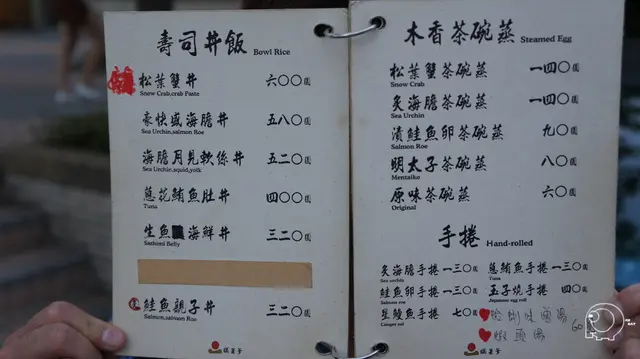 壽司丼飯 Bowl Rice
松葉蟹丼 六〇〇圓
Snow Crab,crab Paste
豪快盛海膽丼 五八〇圓
Sea Urchin,salmon Roe
海膽月見軟絲丼 五二〇圓
Sea Urchin,squid,yolk
蔥花鮪魚肚丼 四〇〇圓
Tuna
生魚 海鮮丼 三二〇圓
Sashimi Belly
鮭魚親子丼 三二〇圓
Salmon,salmon Roe
木香茶碗蒸 Steamed Egg
松葉蟹茶碗蒸 一四〇圓
Snow Crab
炙海膽茶碗蒸 一四〇圓
Sea Urchin
漬鮭魚卵茶碗蒸 九〇圓
Salmon Roe
明太子茶碗蒸 八〇圓
Mentaiko
原味茶碗蒸 六〇圓
Original
手捲 Hand-rolled
炙海膽手捲 一三〇圓
Sea urchin
蔥鮪魚手捲 一三〇圓
Tuna
鮭魚卵手捲 一三〇圓
Salmon roe
玉子燒手捲 四〇圓
Japanese egg roll
星鰻魚手捲 七〇圓
Conger eel
60